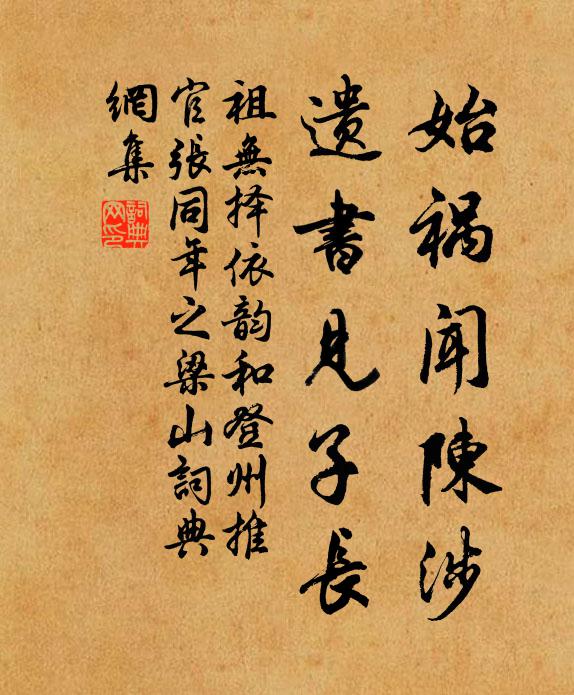 始祸闻陳涉
遗書見子長
祖無择依韵和登州推
官張同年之梁山詞典
網集
詞典
网印